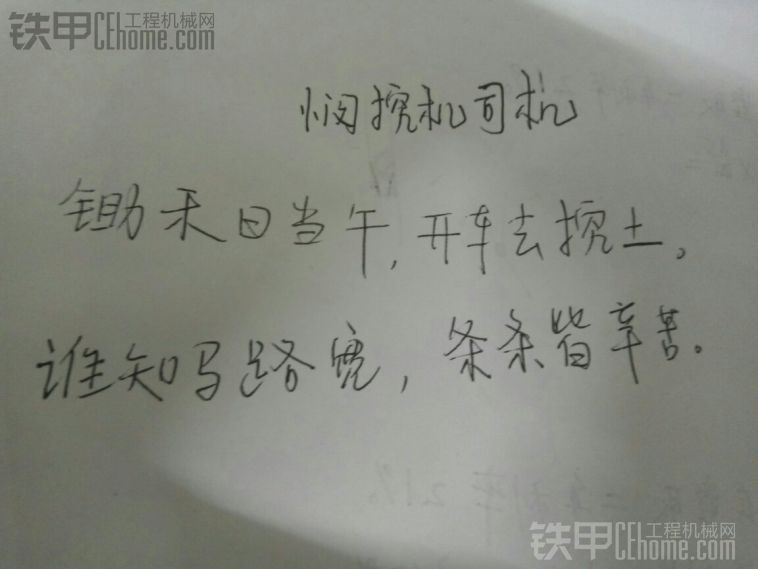 铁甲 工程机械网
CEhome.com
悯挖机司机
锄禾日当午,开车去挖土。
谁知马路宽,条条皆辛苦。
铁甲 工程机械网
CEhome.com